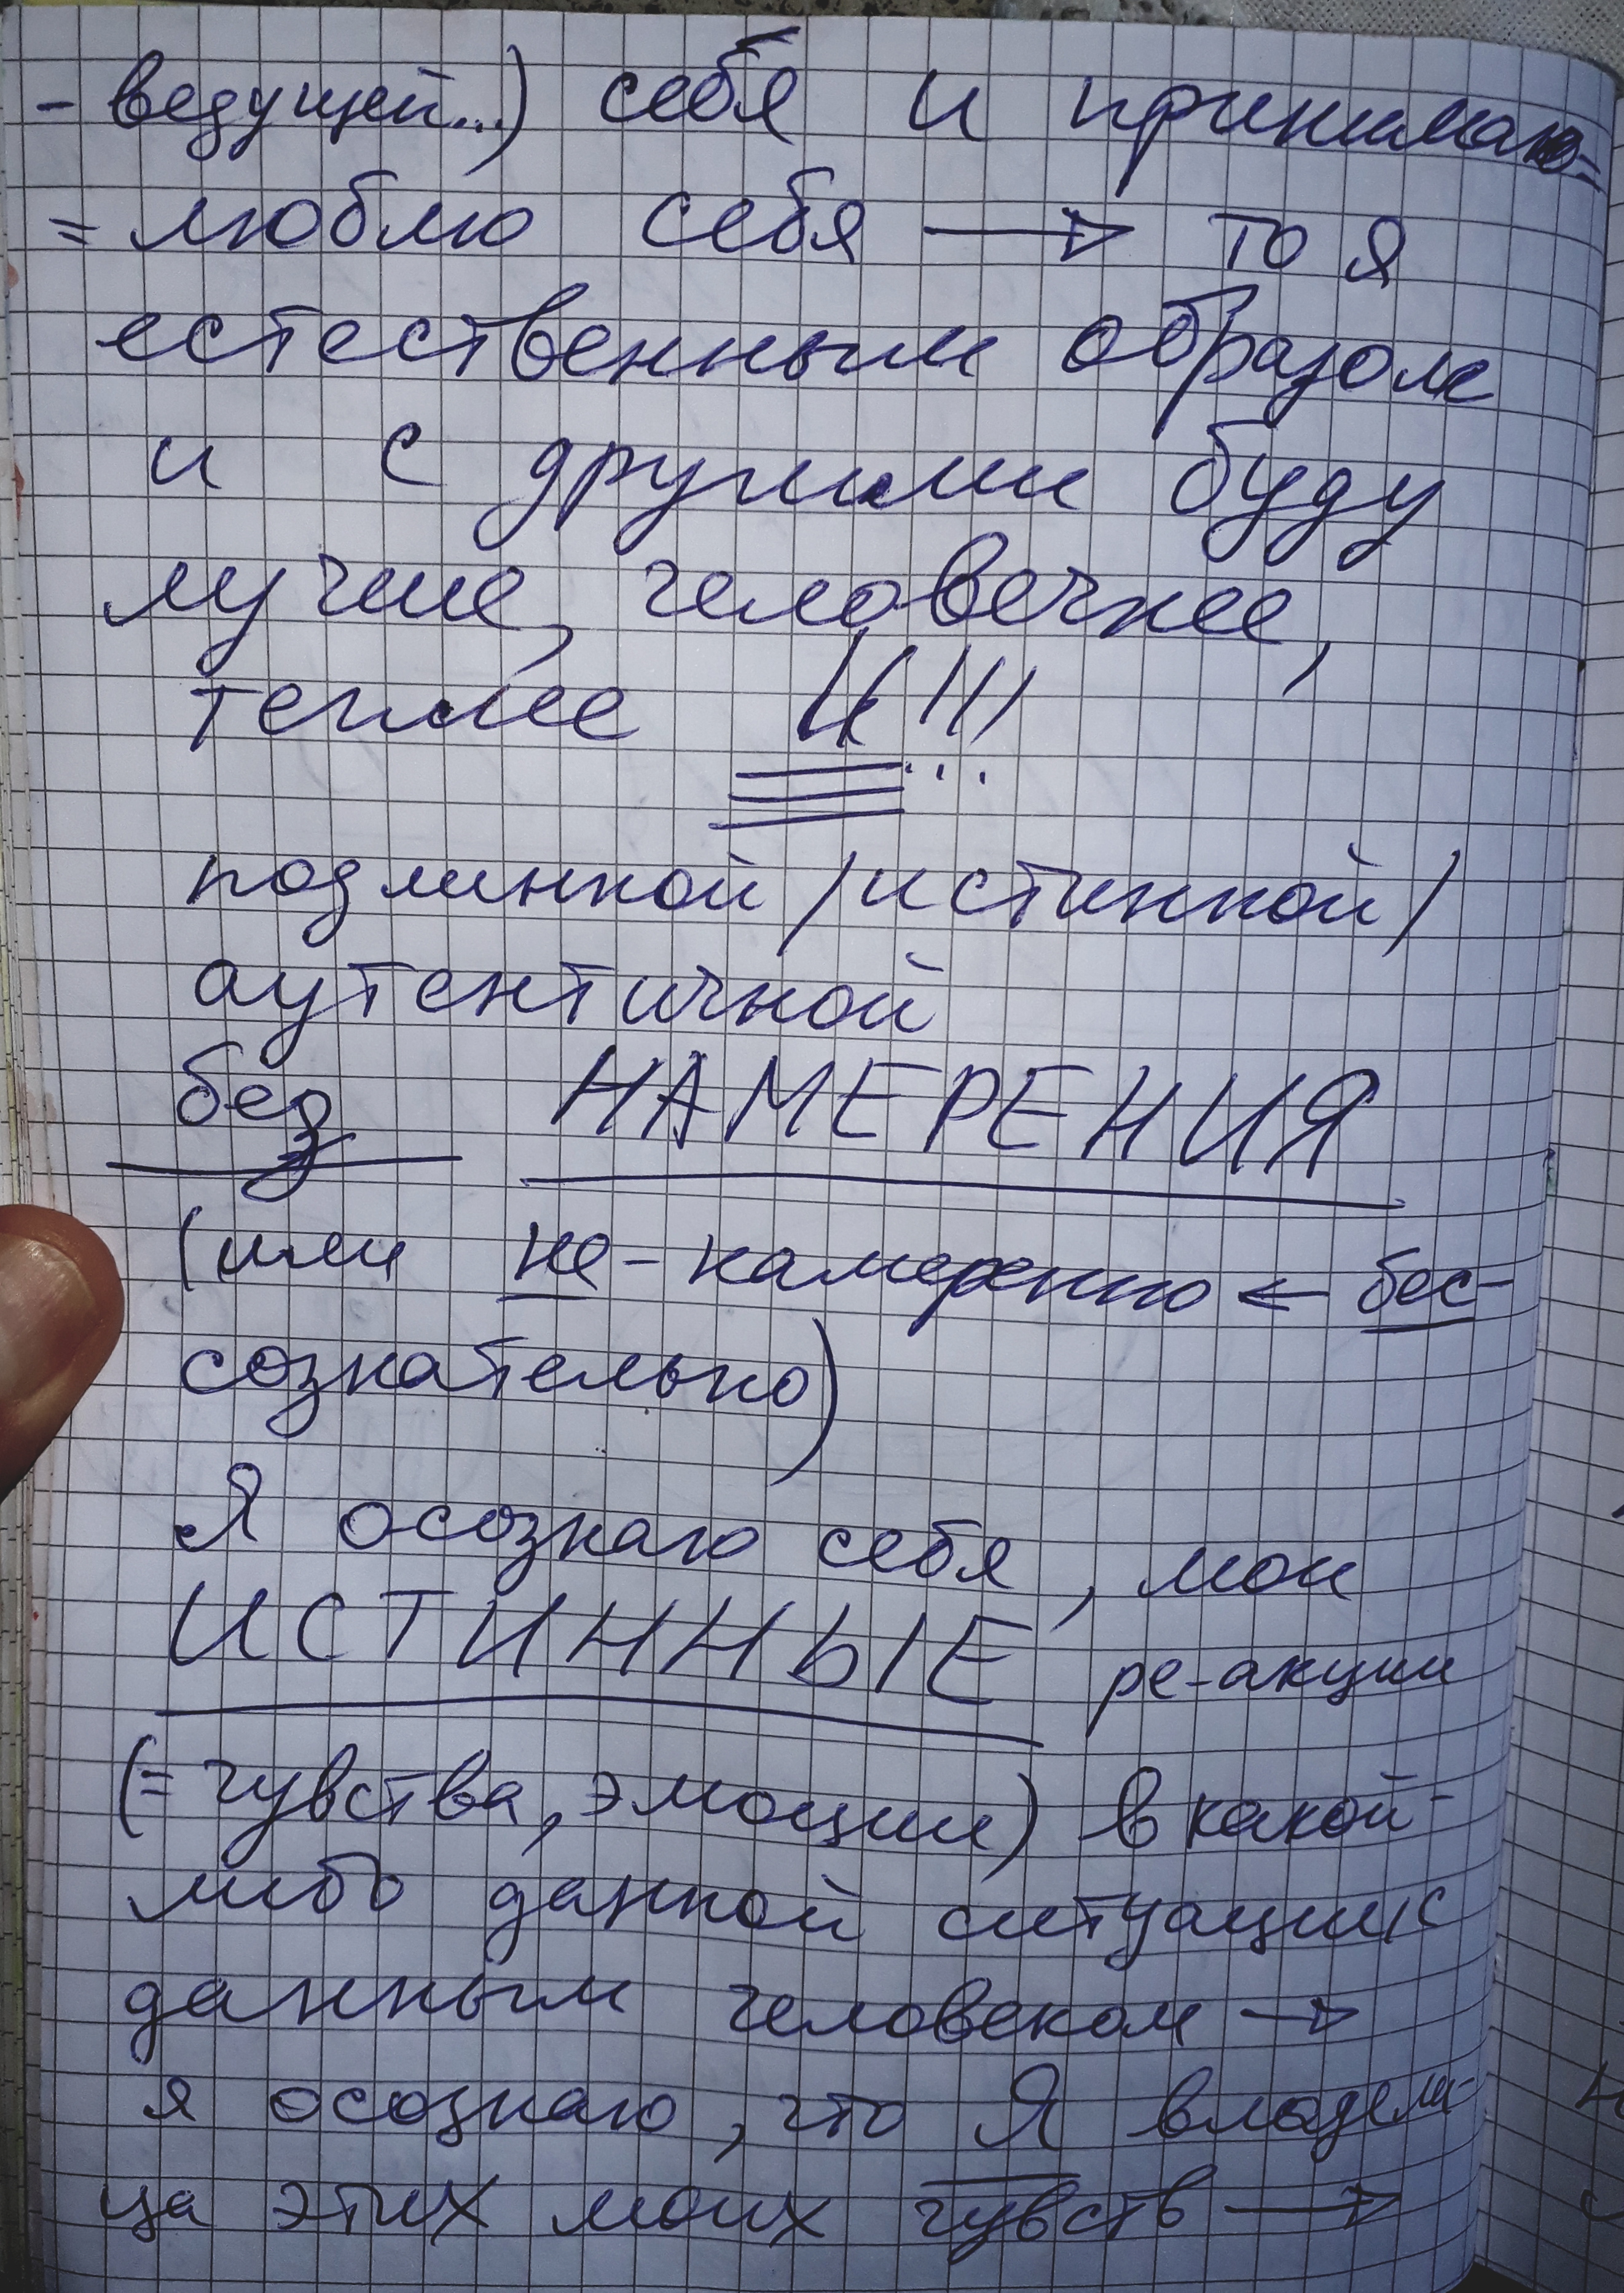 - ведущей...) себя и принимаю=
= люблю себя → то я
естественным образом
и с другими буду
лучше, человечнее,
теплее И !!!
подлинной / истинной /
аутентичной
без НАМЕРЕНИЯ
(или не-намеренно ← бес-
сознательно)
Я осознаю себя, мои
ИСТИННЫЕ ре-акции
(= чувства, эмоции) в какой-
либо данной ситуации с
данным человеком →
я осознаю, что Я владели-
ца этих моих чувств →